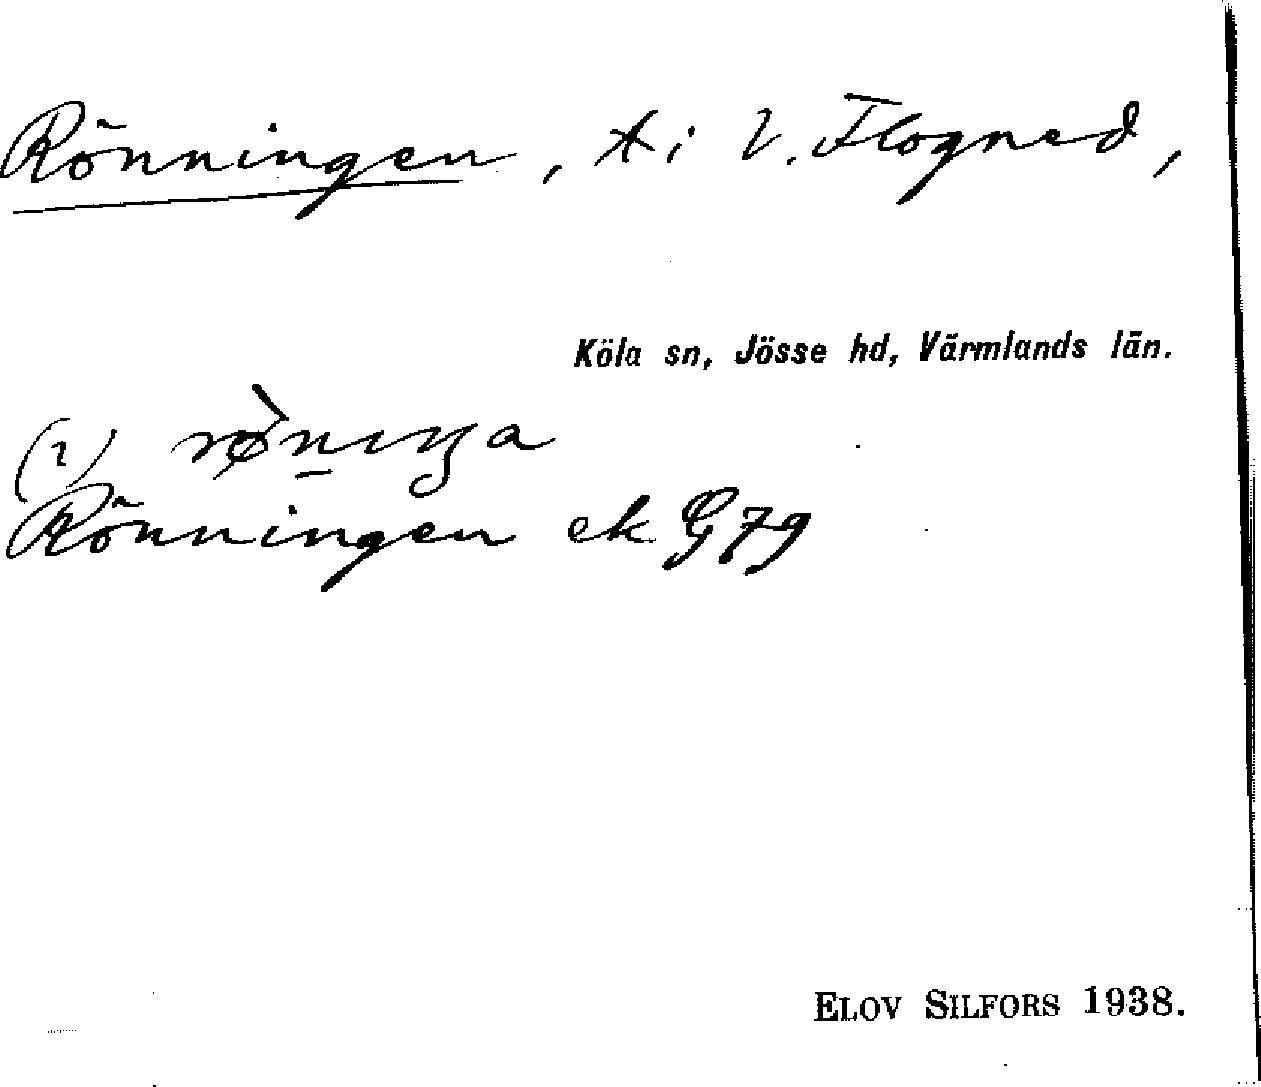 Rönningen, t i V. Flogned,
Köla sn, Jösse hd, Värmlands län.
(1)
Rönningen ek G 79
ELOV SILFORS 1938.